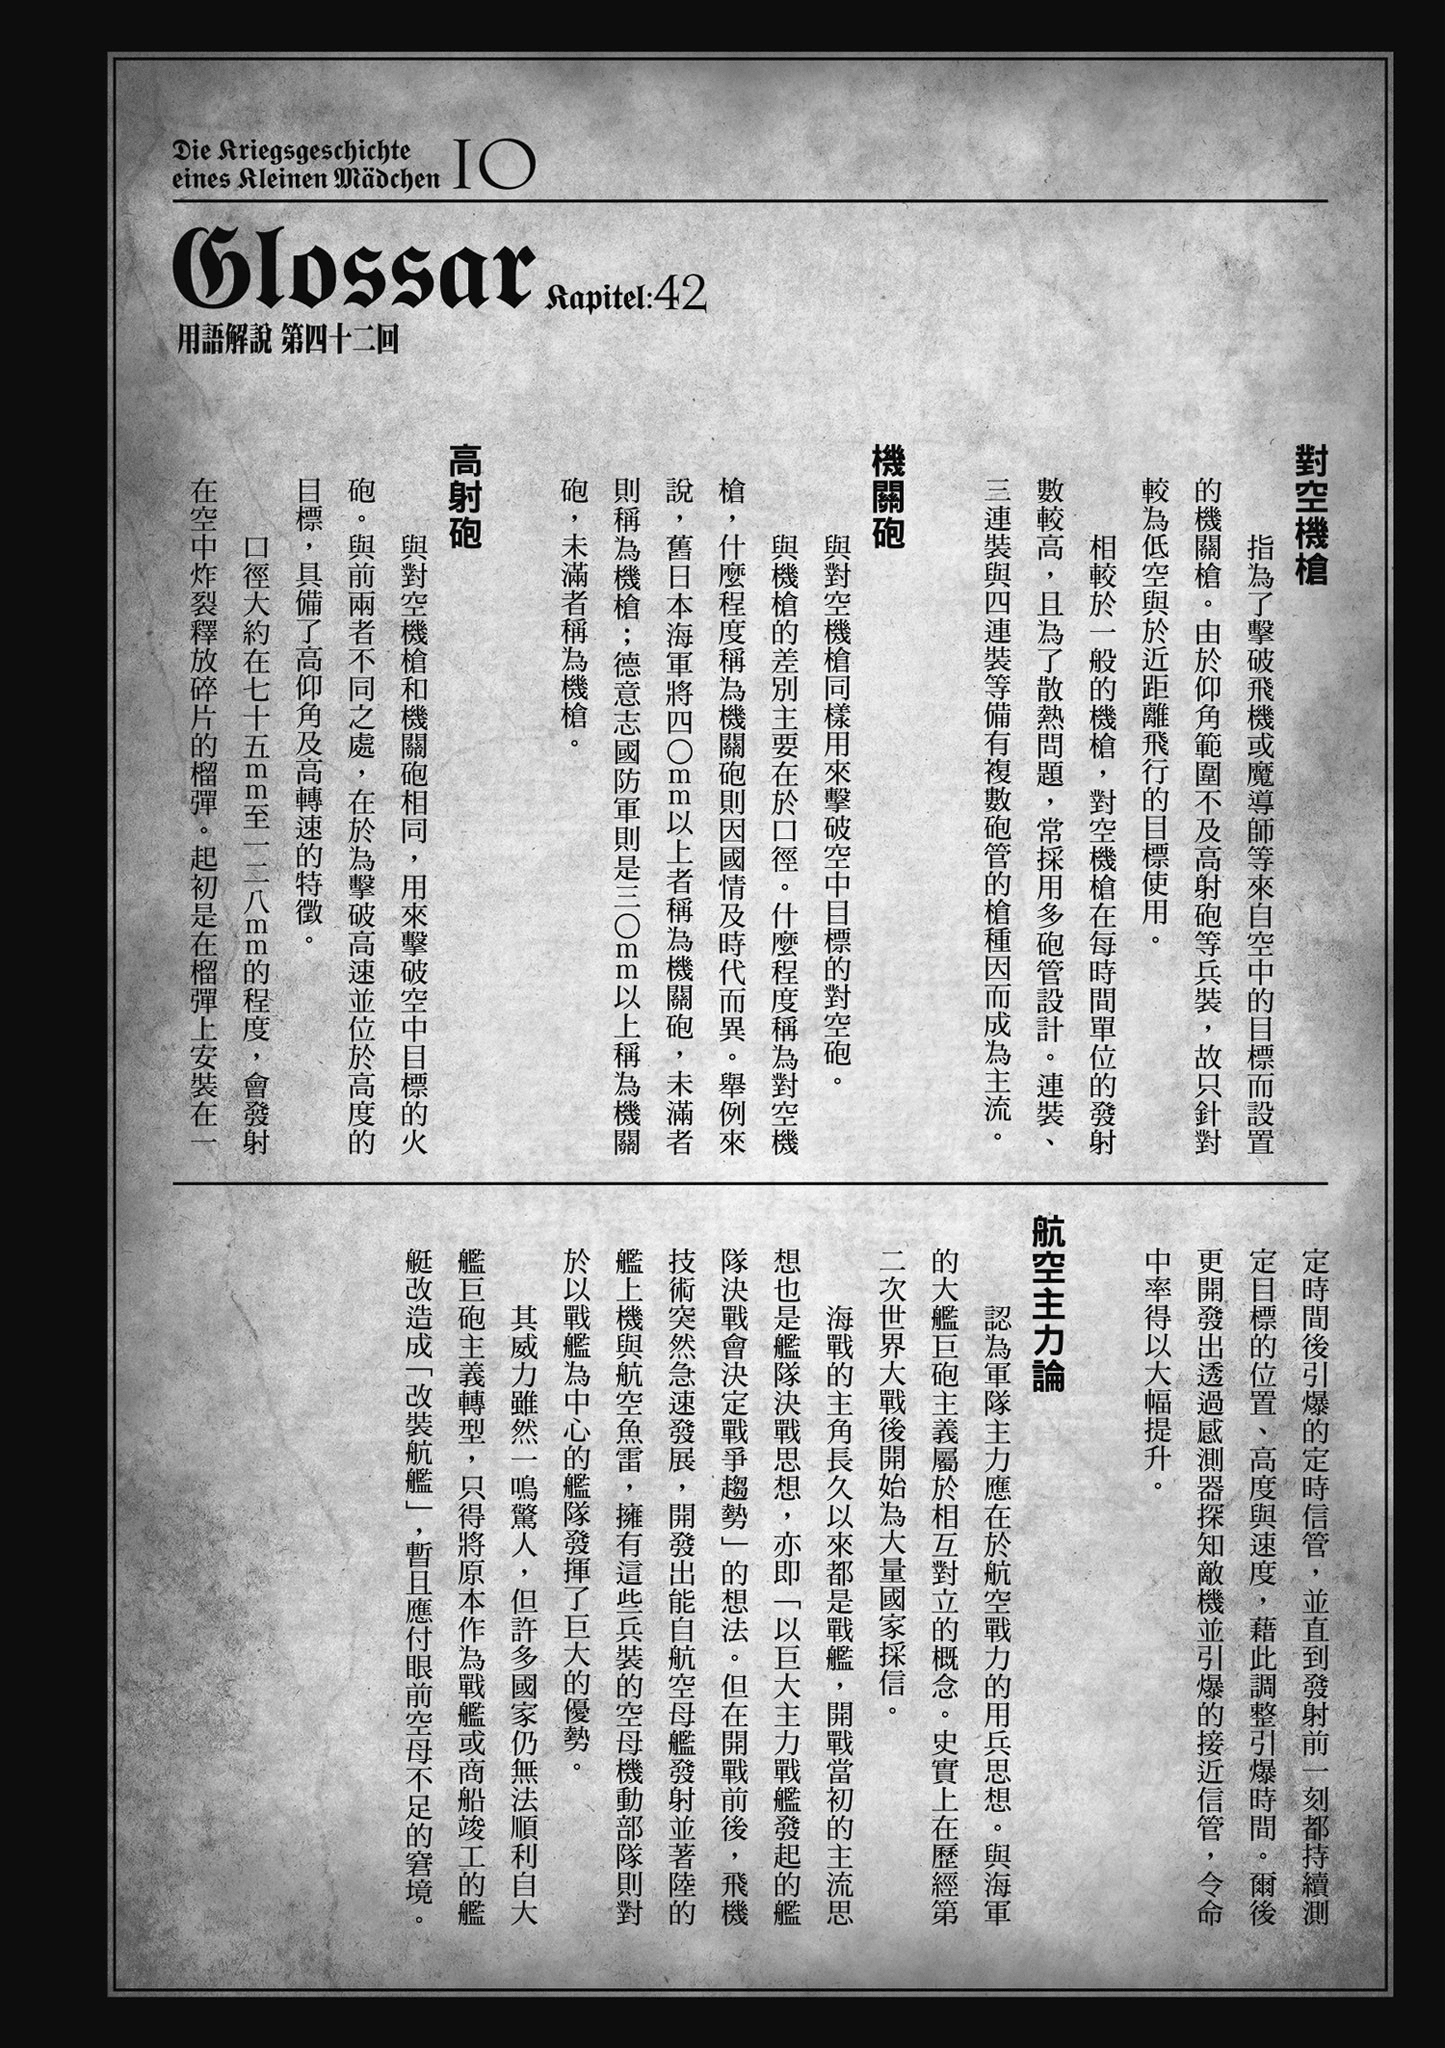 Die Kriegsgeschichte
eines Kleinen Mädchen 10
Glossar Kapitel:42
用語解說 第四十二回
對空機槍
指為了擊破飛機或魔導師等來自空中的目標而設置
的機關槍。由於仰角範圍不及高射砲等兵裝，故只針對
較為低空與於近距離飛行的目標使用。
相較於一般的機槍，對空機槍在每時間單位的發射
數較高，且為了散熱問題，常採用多砲管設計。連裝、
三連裝與四連裝等備有複數砲管的槍種因而成為主流。
機關砲
與對空機槍同樣用來擊破空中目標的對空砲。
與機槍的差別主要在於口徑。什麼程度稱為對空機
槍，什麼程度稱為機關砲則因國情及時代而異。舉例來
說，舊日本海軍將四〇mm以上者稱為機關砲，未滿者
則稱為機槍；德意志國防軍則是三〇mm以上稱為機關
砲，未滿者稱為機槍。
高射砲
與對空機槍和機關砲相同，用來擊破空中目標的火
砲。與前兩者不同之處，在於為擊破高速並位於高度的
目標，具備了高仰角及高轉速的特徵。
口徑大約在七十五mm至一二八mm的程度，會發射
在空中炸裂釋放碎片的榴彈。起初是在榴彈上安裝在一
定時間後引爆的定時信管，並直到發射前一刻都持續測
定目標的位置、高度與速度，藉此調整引爆時間。爾後
更開發出透過感測器探知敵機並引爆的接近信管，令命
中率得以大幅提升。
航空主力論
認為軍隊主力應在於航空戰力的用兵思想。與海軍
的大艦巨砲主義屬於相互對立的概念。史實上在歷經第
二次世界大戰後開始為大量國家採信。
海戰的主角長久以來都是戰艦，開戰當初的主流思
想也是艦隊決戰思想，亦即「以巨大主力戰艦發起的艦
隊決戰會決定戰爭趨勢」的想法。但在開戰前後，飛機
技術突然急速發展，開發出能自航空母艦發射並著陸的
艦上機與航空魚雷，擁有這些兵裝的空母機動部隊則對
於以戰艦為中心的艦隊發揮了巨大的優勢。
其威力雖然一鳴驚人，但許多國家仍無法順利自大
艦巨砲主義轉型，只得將原本作為戰艦或商船竣工的艦
艇改造成「改裝航艦」，暫且應付眼前空母不足的窘境。